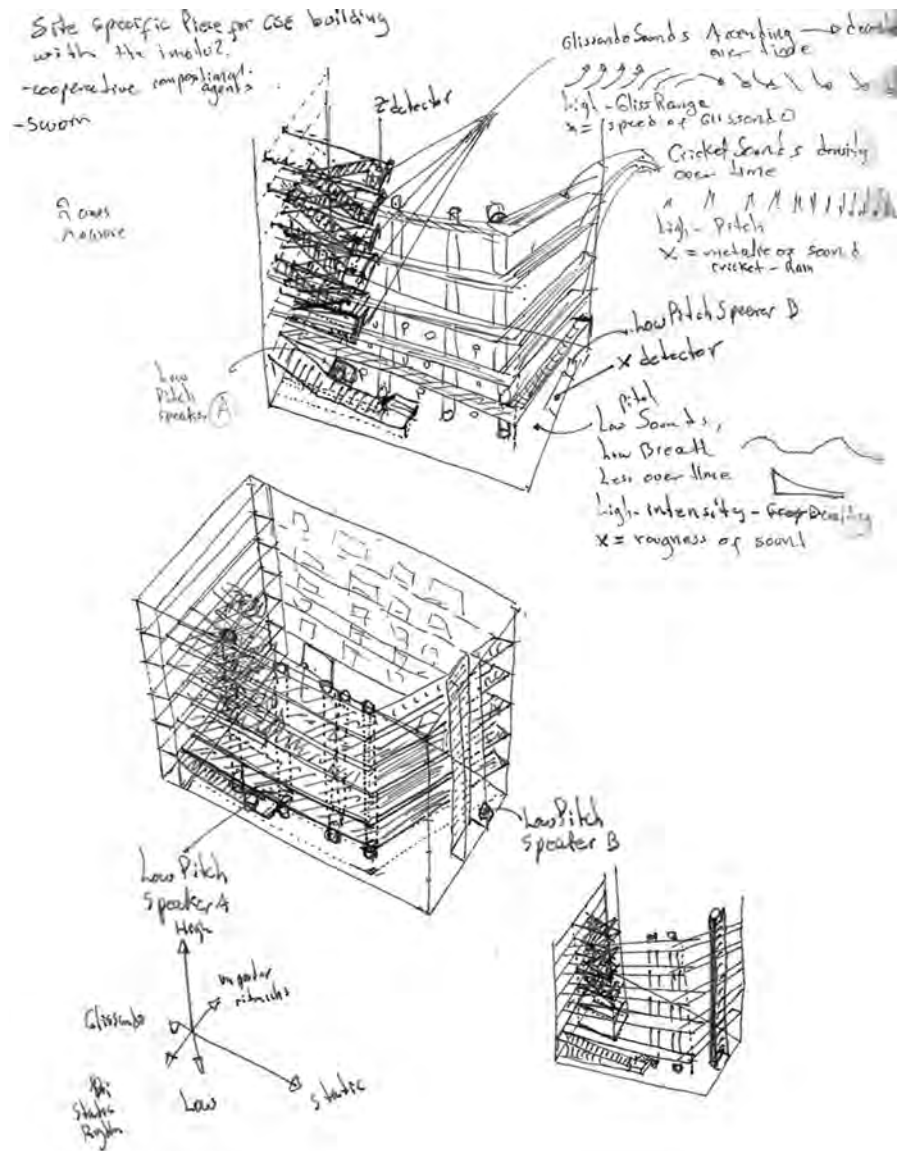 Site specific Piece for CSE building
with the
-cooperative compositional
agents
-Sworn
Z detector
Glissando Sounds Ascending
over time
High - Gliss Range
x = speed of Glissando
Cricket Sounds density
over time
High - Pitch
x = metalic of sound
cricket - Rain
Low Pitch Speaker B
x detector
Low
Pitch
speaker A
pitch
Low Sounds,
Low Breath
Less over time
High - intensity -
x = rougness of sound
Low Pitch
Speaker B
Low Pitch
Speaker A
High
Glissando
static
Low
Static